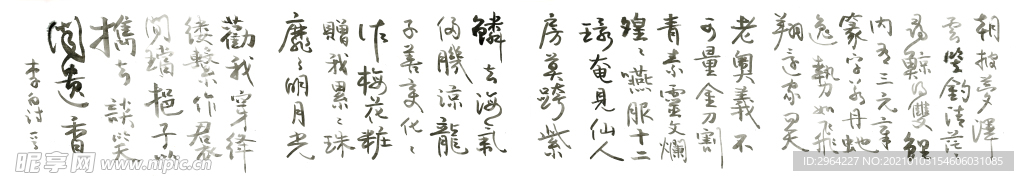 朝披夢澤
雲笠釣清茫〻
尋鯨得雙鯉
内有三元章
篆字若丹蛇
逸勢如飛
翔還家
老奧義不
可量金刀割
青素靈文爛
煌〻嚥服十二
環奄見仙人
房莫跨紫
鱗去海氣
侵肌涼龍
子善變化〻
作梅花粧
贈我累〻珠
靡〻明月光
勸我穿絳
縷繫作君
間璫挹子以
攜去談笑
聞遺香
李白詩
昵享网 www.nipic.cn
ID:2964227 NO:20210103154606031085